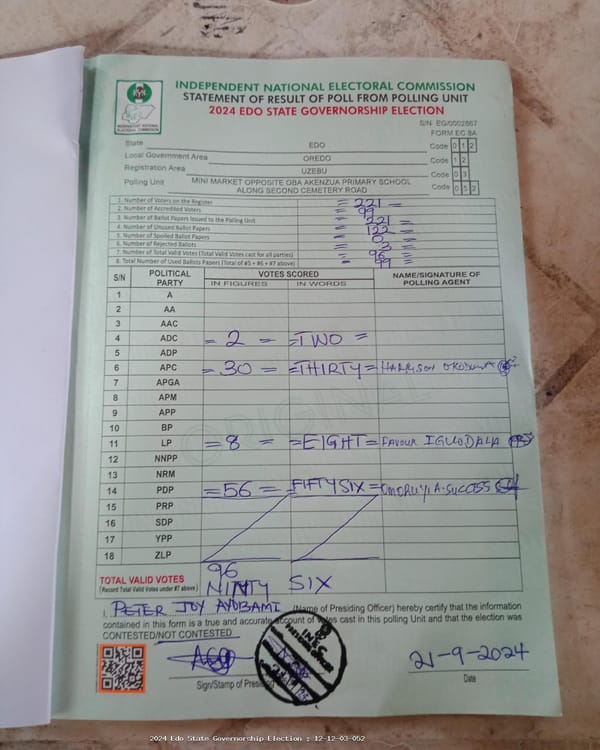 INDEPENDENT NATIONAL ELECTORAL COMMISSION
STATEMENT OF RESULT OF POLL FROM POLLING UNIT
2024 EDO STATE GOVERNORSHIP ELECTION
INDEPENDENT NATIONAL
ELECTORAL COMMISSION
S/N EG/0002667
FORM EC 8A
State EDO Code 0 1 2
Local Government Area OREDO Code 1 2
Registration Area UZEBU Code 0 3
Polling Unit MINI MARKET OPPOSITE OBA AKENZUA PRIMARY SCHOOL
ALONG SECOND CEMETERY ROAD Code 0 5 2
1. Number of Voters on the Register = 221 =
2. Number of Accredited Voters = 99 =
3. Number of Ballot Papers Issued to the Polling Unit = 221 =
4. Number of Unused Ballot Papers = 122 =
5. Number of Spoiled Ballot Papers = 0 =
6. Number of Rejected Ballots = 3 =
7. Number of Total Valid Votes (Total Valid Votes cast for all parties) = 96 =
8. Total Number of Used Ballots Papers (Total of #5 + #6 + #7 above) = 99 =
S/N POLITICAL PARTY VOTES SCORED NAME/SIGNATURE OF POLLING AGENT
IN FIGURES IN WORDS
1 A
2 AA
3 AAC
4 ADC = 2 = =TWO =
5 ADP
6 APC = 30 = =THIRTY= HARRISON
7 APGA
8 APM
9 APP
10 BP
11 LP = 8 = =EIGHT= FAVOUR IGUODALA
12 NNPP
13 NRM
14 PDP = 56 = =FIFTY SIX = OMORUYI A. SUCCESS
15 PRP
16 SDP
17 YPP
18 ZLP
ORIGINAL
TOTAL VALID VOTES 96
(Record Total Valid Votes under #7 above) NINTY SIX
I, PETER JOY AYOBAMI (Name of Presiding Officer) hereby certify that the information
contained in this form is a true and accurate account of votes cast in this polling Unit and that the election was
CONTESTED/NOT CONTESTED
INEC
21-9-2024
Sign/Stamp of Presiding Date
2024 Edo State Governorship Election : 12-12-03-052